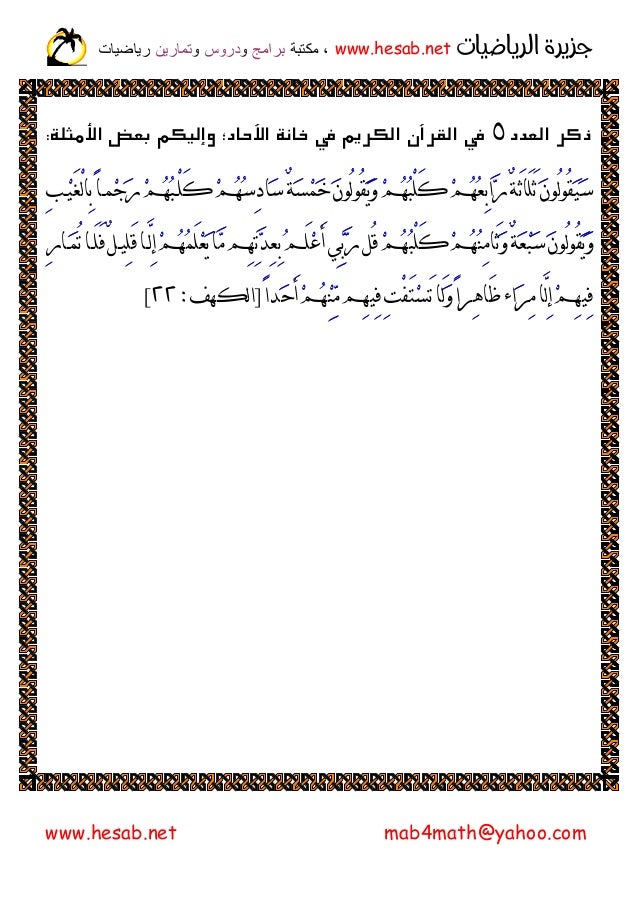 جزيرة الرياضيات www.hesab.net ، مكتبة برامج ودروس وتمارين رياضيات
ذكر العدد ٥ في القرآن الكريم في خانة الآحاد؛ وإليكم بعض الأمثلة:
سَيَقُولُونَ ثَلَاثَةٌ رَّابِعُهُمْ كَلْبُهُمْ وَيَقُولُونَ خَمْسَةٌ سَادِسُهُمْ كَلْبُهُمْ رَجْماً بِالْغَيْبِ
وَيَقُولُونَ سَبْعَةٌ وَثَامِنُهُمْ كَلْبُهُمْ قُل رَّبِّي أَعْلَمُ بِعِدَّتِهِم مَّا يَعْلَمُهُمْ إِلَّا قَلِيلٌ فَلَا تُمَارِ
فِيهِمْ إِلَّا مِرَاء ظَاهِراً وَلَا تَسْتَفْتِ فِيهِم مِّنْهُمْ أَحَداً [الكهف : ٢٢]
www.hesab.net mab4math@yahoo.com